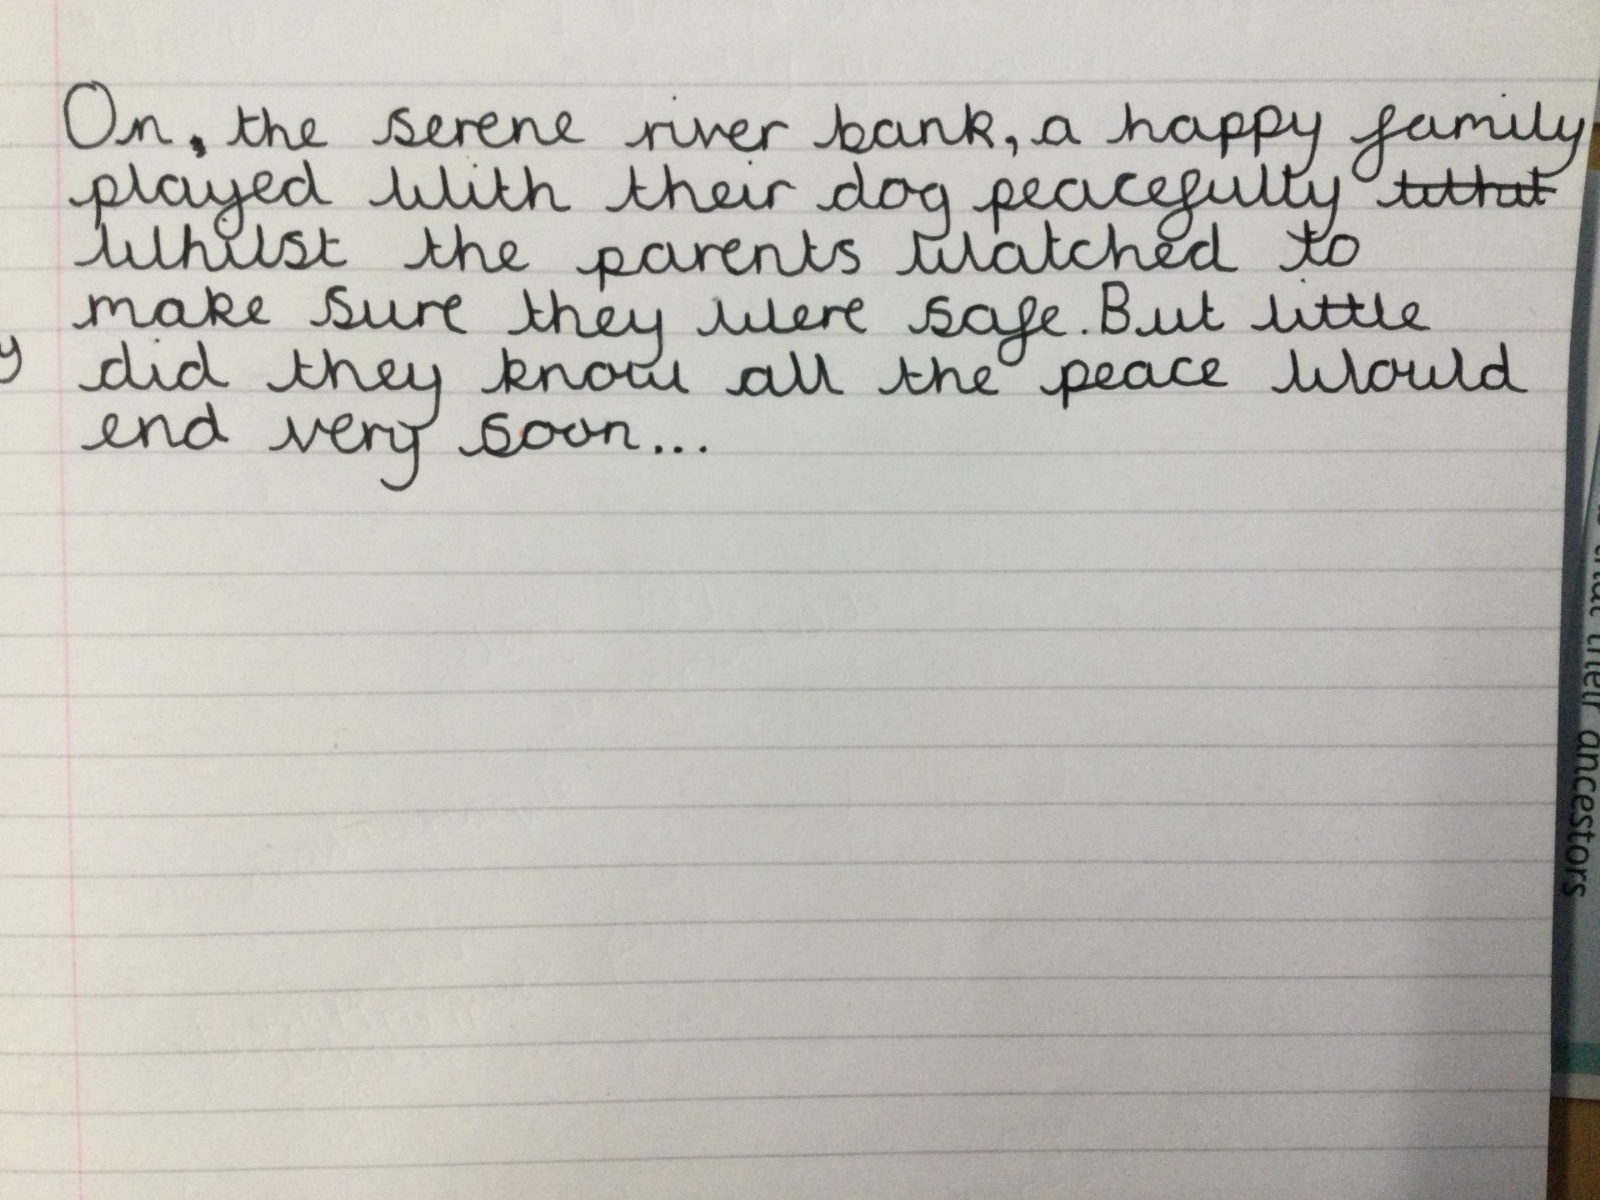 On, the serene river bank, a happy family
played with their dog peacefully
whilst the parents watched to
make sure they were safe. But little
did they know all the peace would
y
end very soon...
that their ancestors